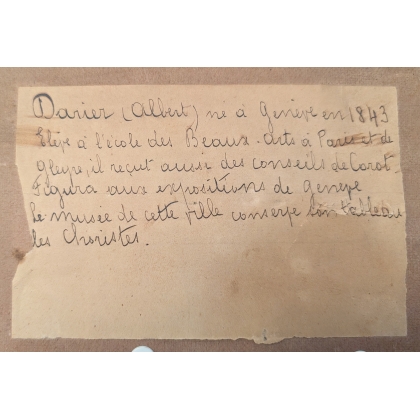 Darier (Albert) né à Genève en 1843
Elève à l'école des Beaux-Arts à Paris et de
Gleyre, il reçut aussi des conseils de Corot.
Figura aux expositions de Genève
Le musée de cette ville conserve son tableau
les Choristes.